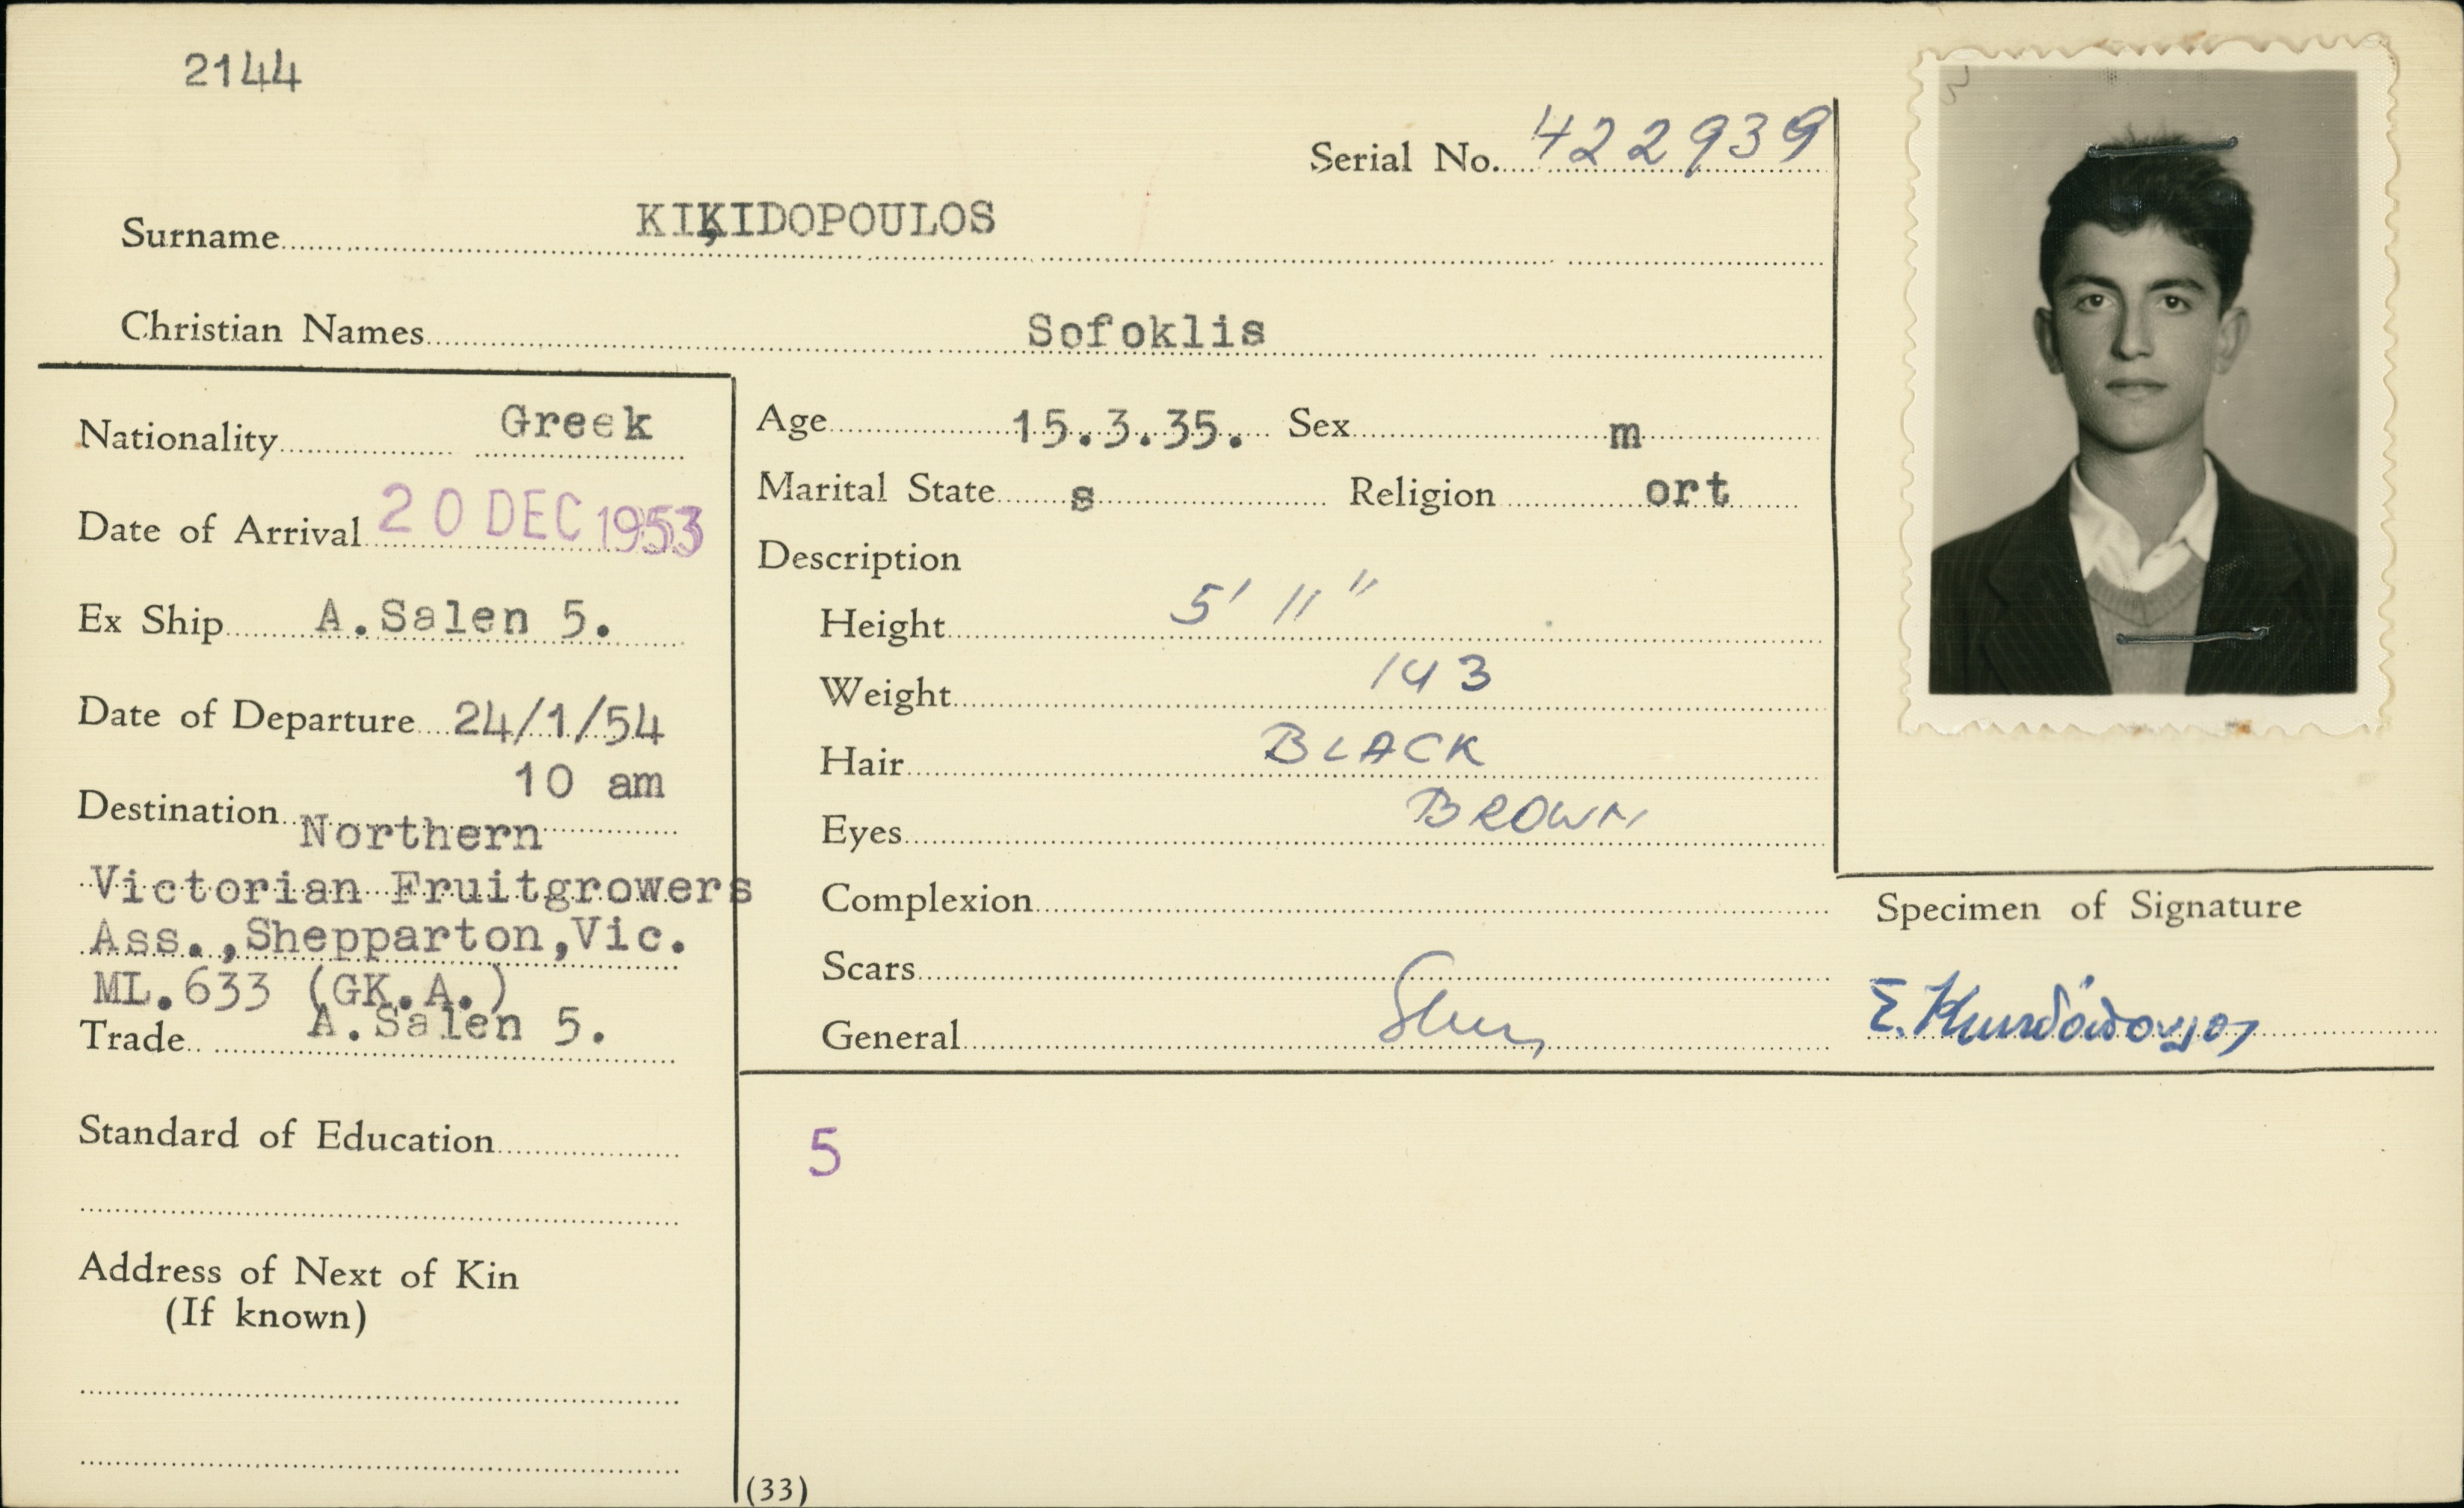 2144
Serial No. 422939
Surname KIKIDOPOULOS
Christian Names Sofoklis
Nationality Greek
Date of Arrival 20 DEC 1953
Ex Ship A.Salen 5.
Date of Departure 24/1/54
10 am
Destination Northern
Victorian Fruitgrowers
Ass.,Shepparton,Vic.
ML.633 (GK.A.)
Trade A.Salen 5.
Standard of Education
Address of Next of Kin
(If known)
Age 15.3.35. Sex m
Marital State s Religion ort
Description
Height 5' 11"
Weight 143
Hair BLACK
Eyes BROWN
Complexion
Scars
General
5
(33)
Specimen of Signature
Σ.